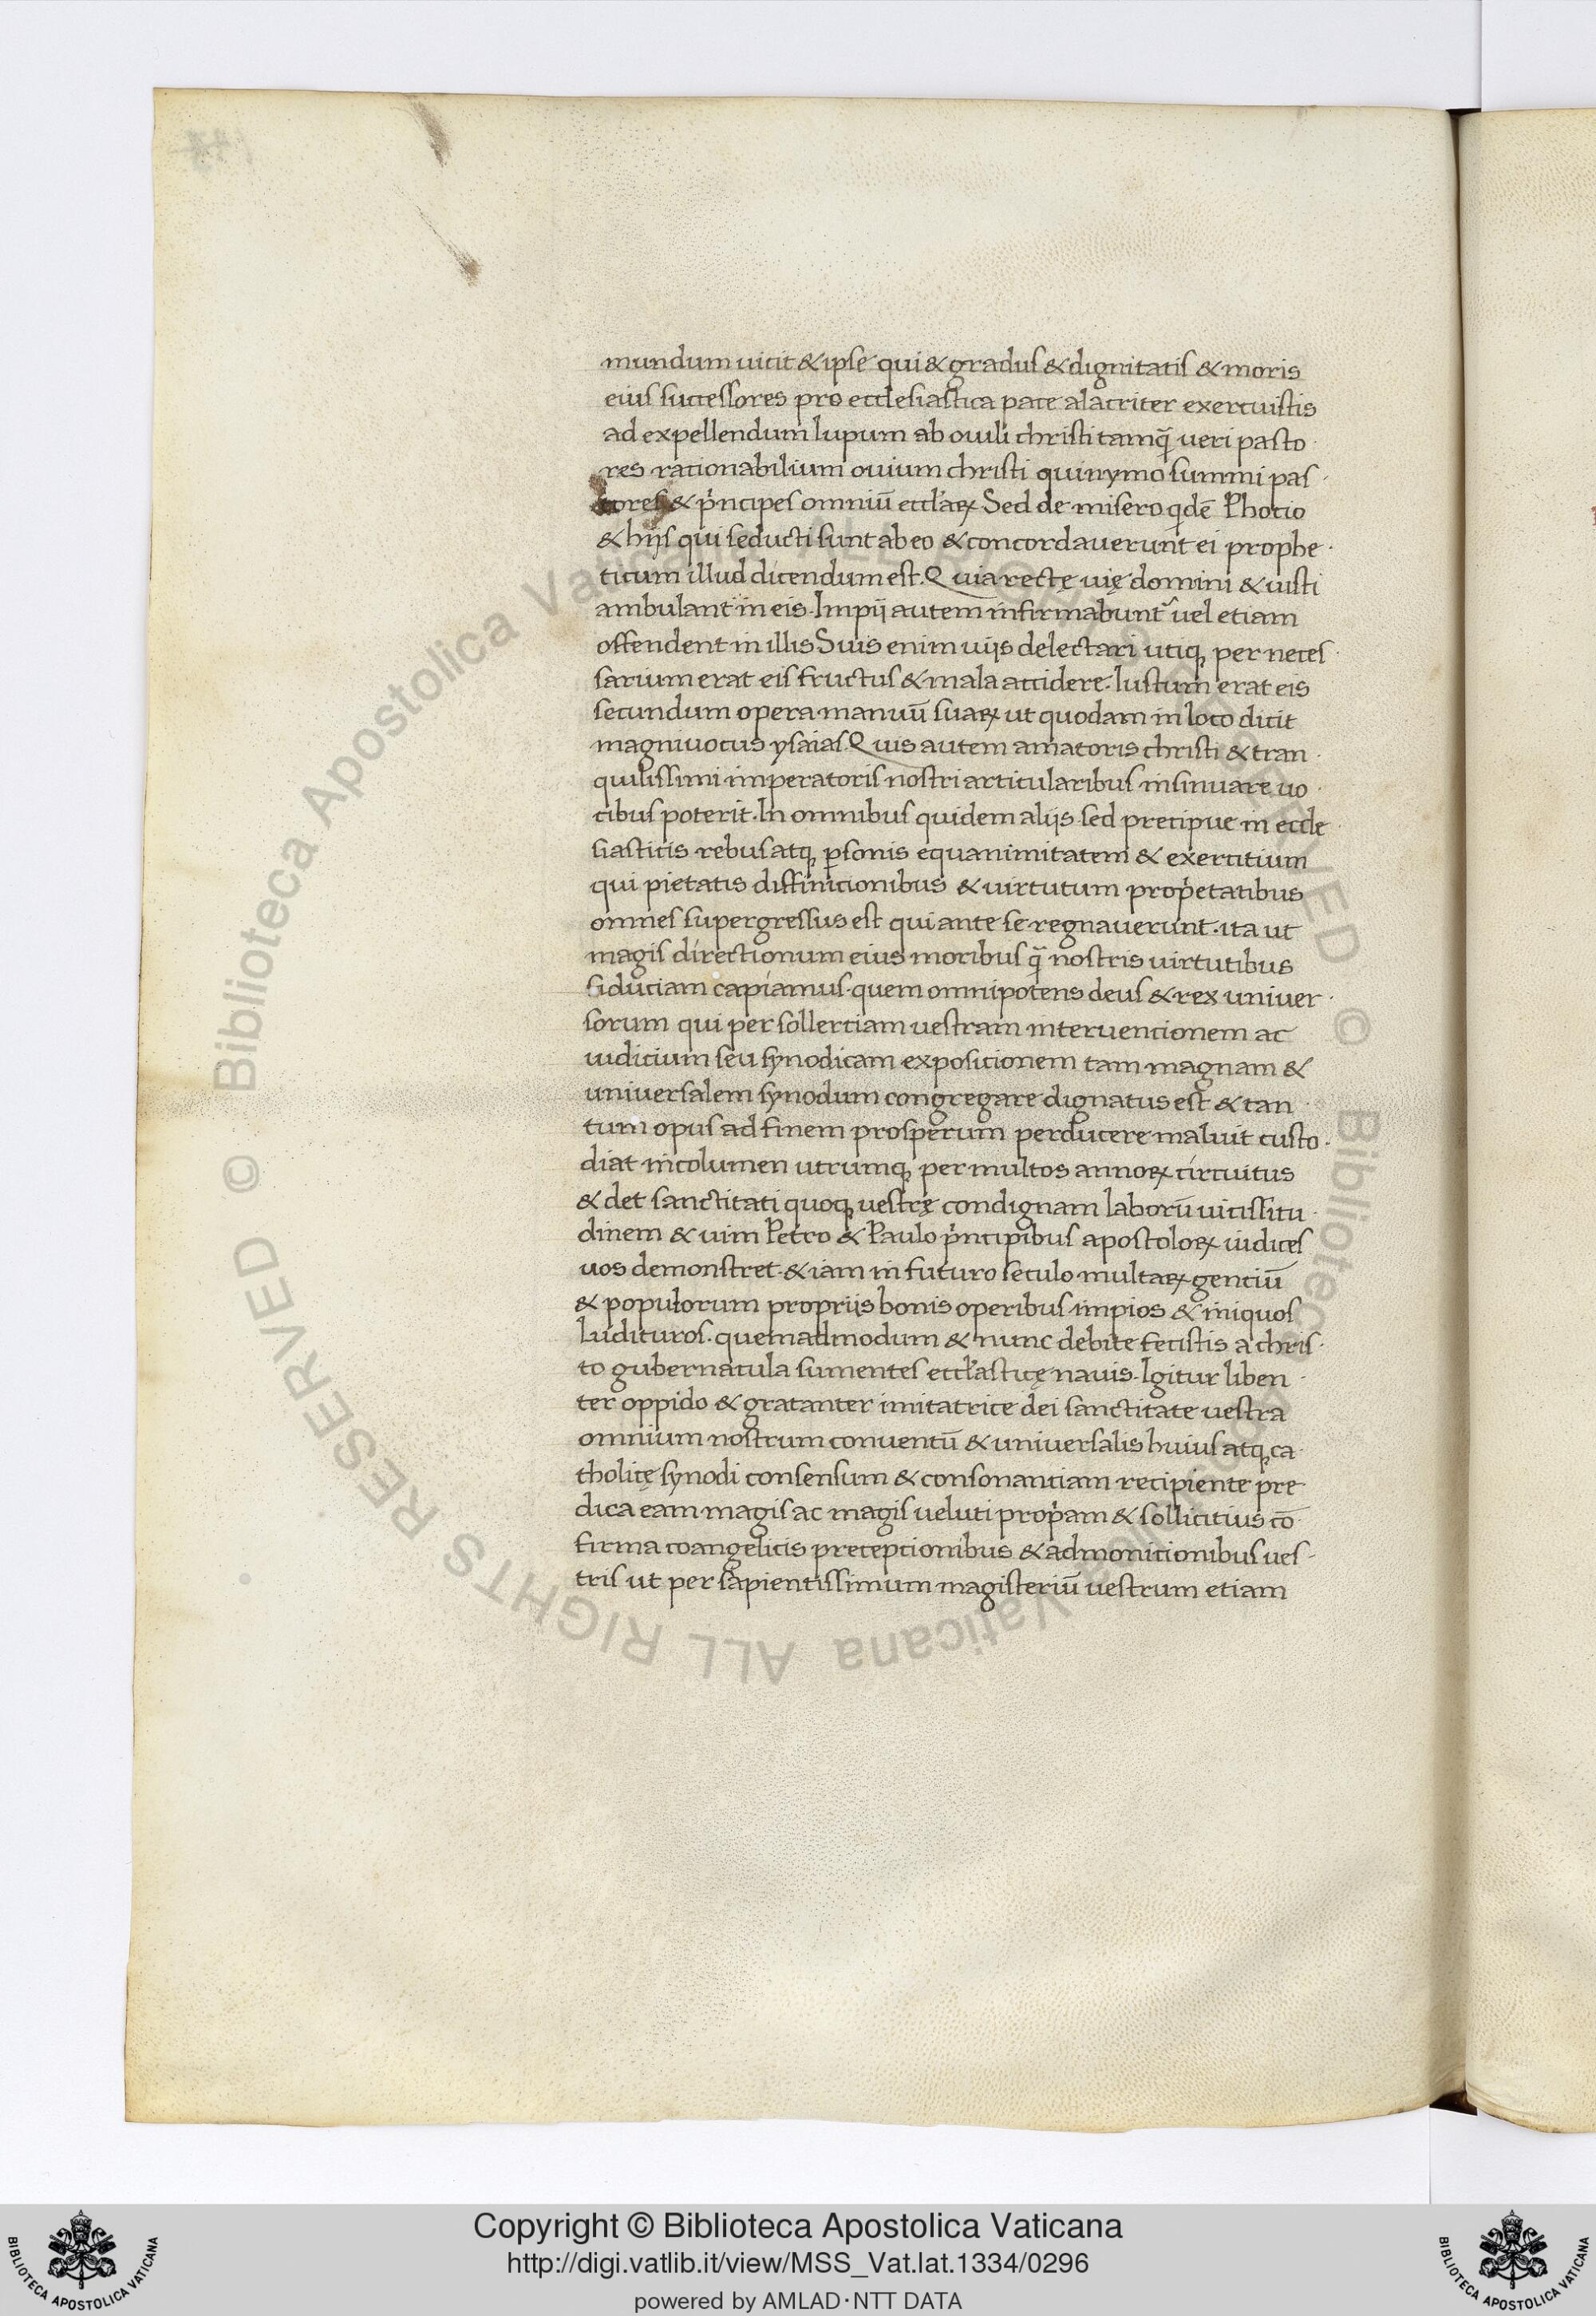 mundum uicit & ipse qui & gradus & dignitatis & moris
eius successores pro ecclesiastica pace alacriter exercuistis
ad expellendum lupum ab ouili christi tamq̃ ueri pasto
res rationabilium ouium christi quinymo summi pas
tores & pͥncipes omniū eccl'aꝝ Sed de misero qͥdē Photio
& hijs qui seducti sunt ab eo & concordauerunt ei prophe
ticum illud dicendum est. Quia rectę uię domini & iusti
ambulant in eis. Impij autem infirmabunt᷑ uel etiam
offendent in illis Suis enim uijs delectari utiqꝫ per neces
sarium erat eis fructus & mala accidere. Iustum erat eis
secundum opera manuū suaꝝ ut quodam in loco dicit
magniuocus ysaias. Quis autem amatoris christi & tran
quilissimi imperatoris nostri articularibus insinuare uo
cibus poterit. In omnibus quidem alijs sed precipue in eccle
siasticis rebus atqꝫ ꝑsonis equanimitatem & exercitium
qui pietatis diffinicionibus & uirtutum propͥetatibus
omnes supergressus est qui ante se regnauerunt. ita ut
magis directionum eius moribus q̃ nostris uirtutibus
fiduciam capiamus. quem omnipotens deus & rex uniuer
sorum qui per sollertiam uestram interuencionem ac
iudicium seu synodicam exposicionem tam magnam &
uniuersalem synodum congregare dignatus est & tan
tum opus ad finem prosperum perducere maluit custo
diat incolumen utrumqꝫ per multos annoꝝ circuitus
& det sanctitati quoqꝫ uestrę condignam laborū uicissitu
dinem & uim Petro & Paulo pͥncipibus apostoloꝝ iudices
uos demonstret. & iam in futuro seculo multaꝝ gentiū
& populorum propriis bonis operibus impios & iniquos
Iudituros. quemadmodum & nunc debite fecistis a chris
to gubernacula sumentes eccl'asticę nauis. Igitur liben
ter oppido & gratanter imitatrice dei sanctitate uestra
omnium nostrum conuentū & uniuersalis huius atqꝫ ca
tholicę synodi consensum & consonantiam recipiente pre
dica eam magis ac magis ueluti propͥam & sollicitius cō
firma coangelicis preceptionibus & admonicionibus ues
tris ut per sapientissimum magisteriū uestrum etiam
Copyright © Biblioteca Apostolica Vaticana
http://digi.vatlib.it/view/MSS_Vat.lat.1334/0296
powered by AMLAD·NTT DATA